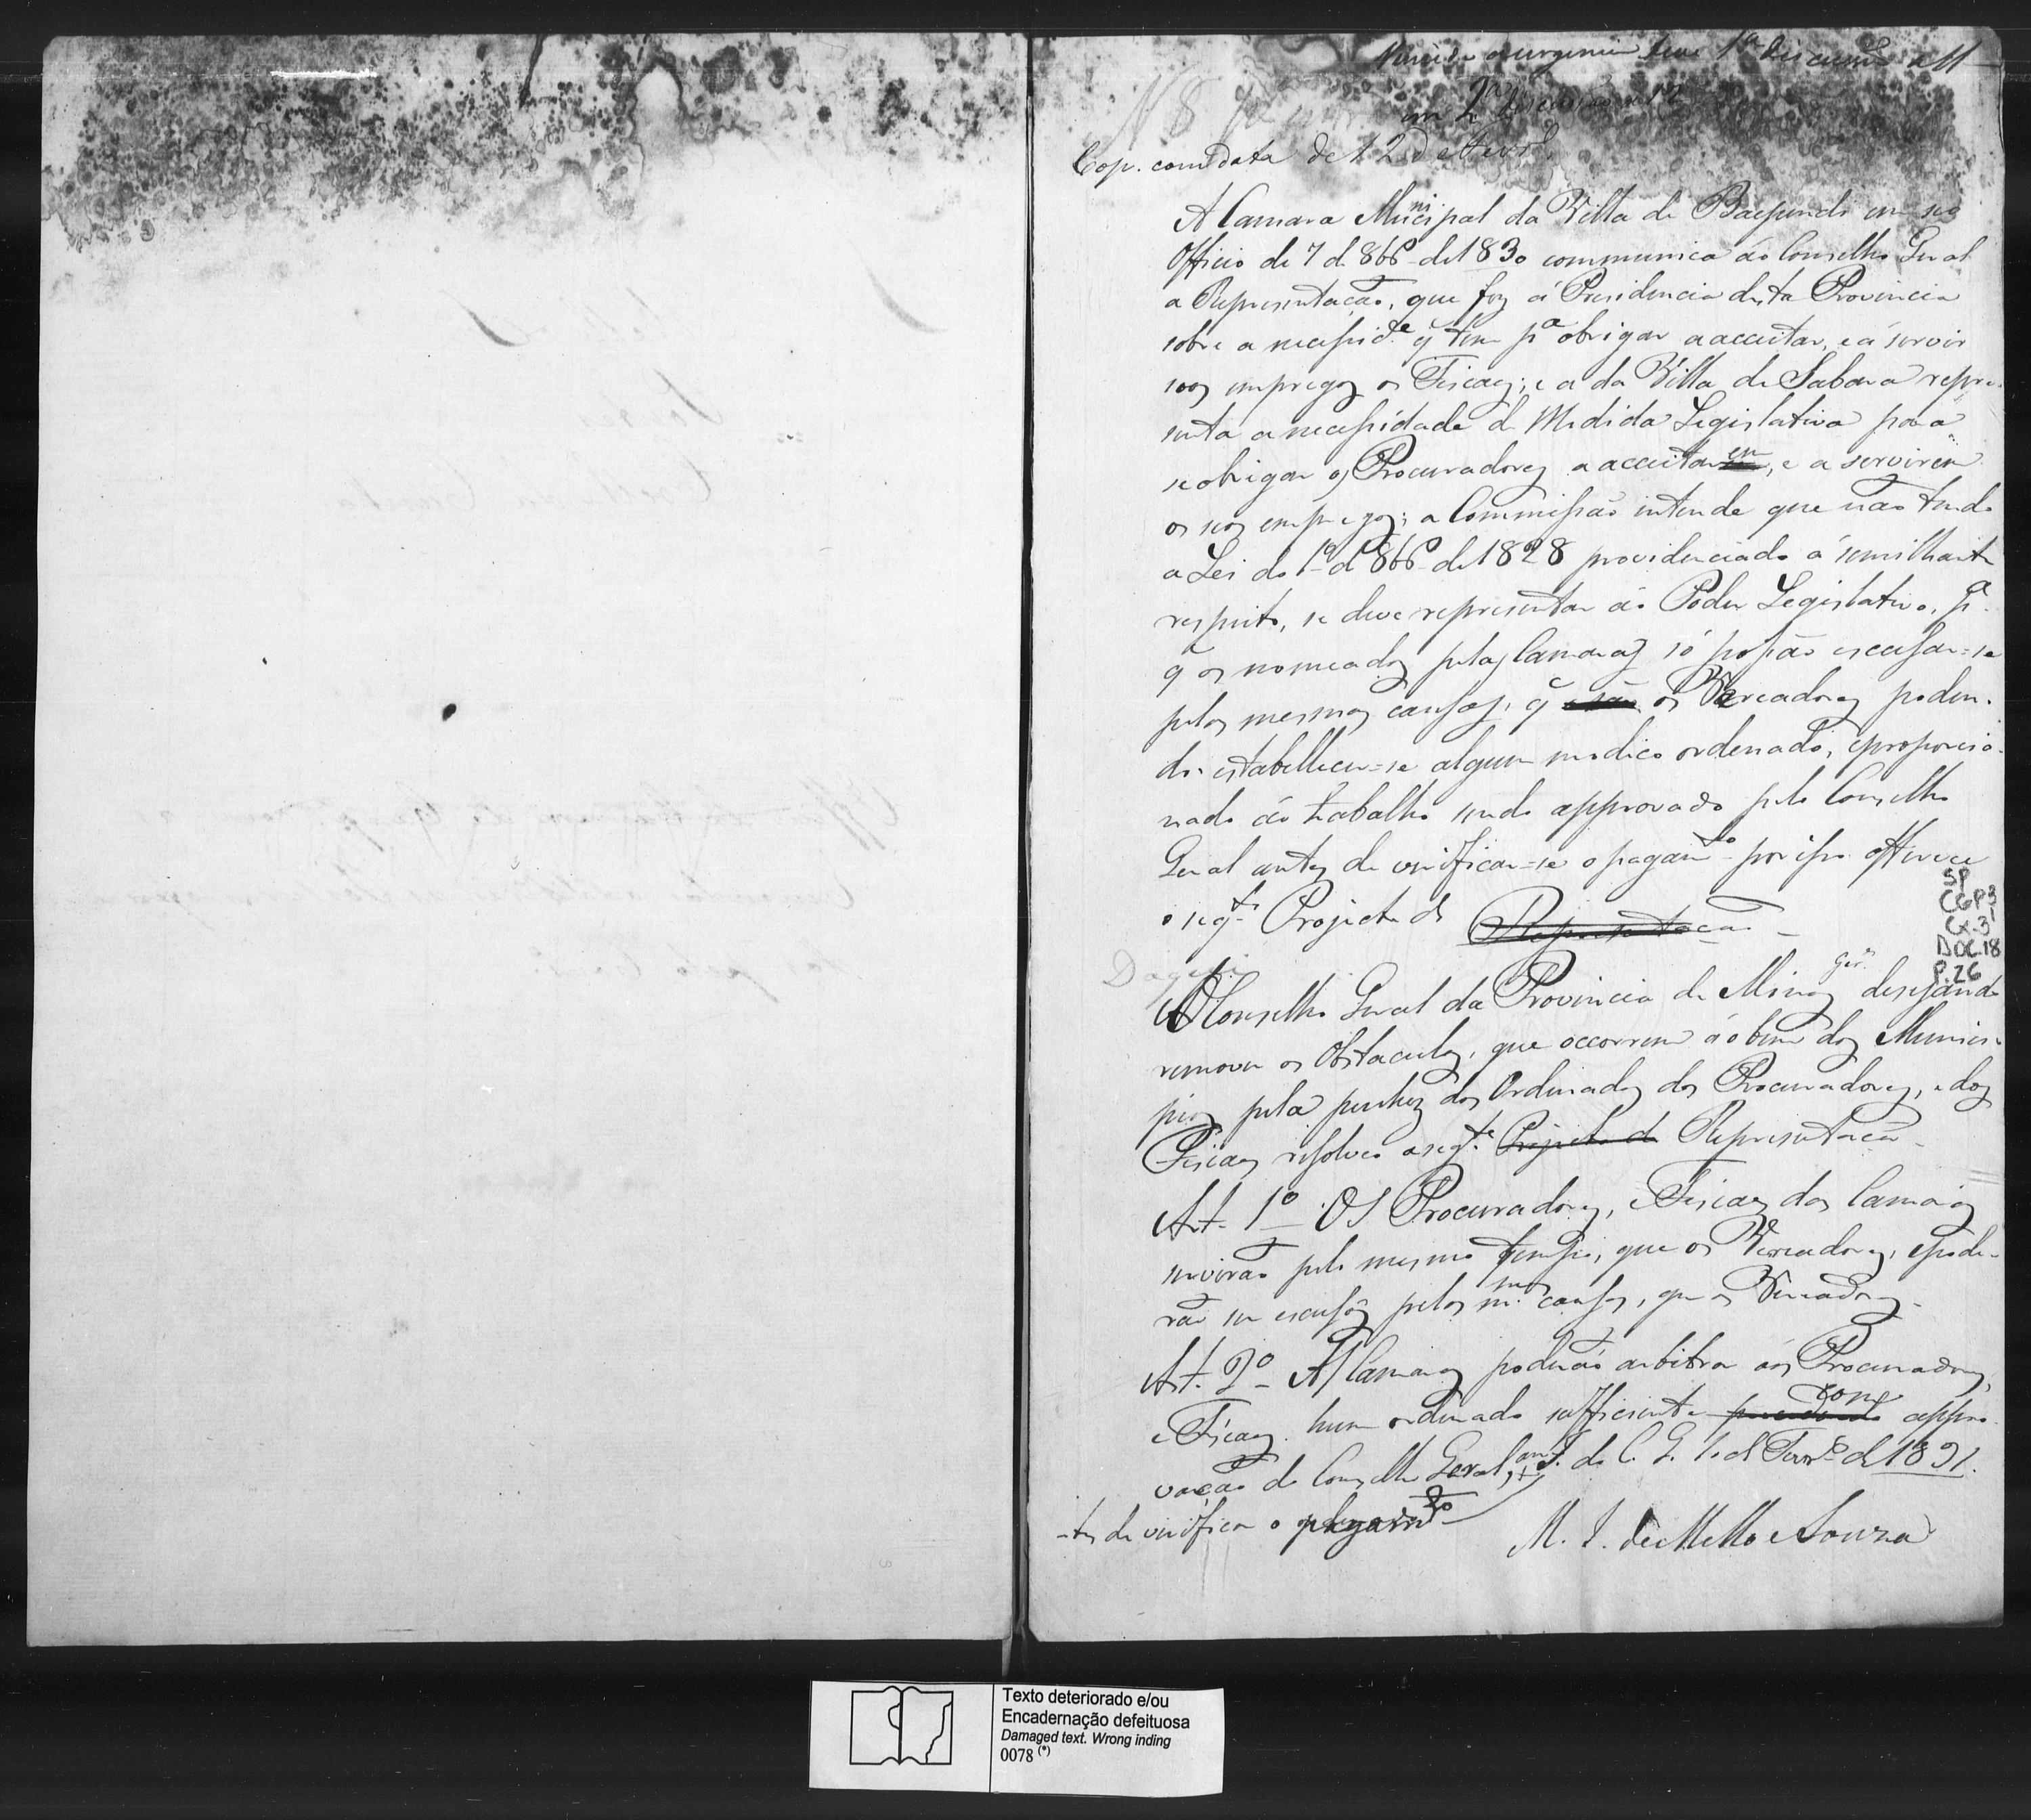 em 2ª discussão a 12
Cop. com data de 12 de Fevrº
A Camara Municipal da Villa de Baependi em seo
Officio de 7 de 8bro de 1830 communica ao Conselho Geral
a Representação, que fez á Presidencia desta Provincia
sobre a necessidᵉ q̃ tem pª obrigar a acceitar, e á servir
seos empregos os Fiscaes; e a da Villa de Sabara repre-
senta a necessidade de Medida Legislativa para
se obrigar os Procuradores a acceitarem, e a servirem
os seos empregos; a Commissão intende que não tendo
a Lei do 1º de 8bro de 1828 providenciado á semilhante
respeito, se deve representar ao Poder Legislativo, pª
q̃ os nomeados pelas Camaras só possão escusar=se
pelas mesmas causas, q̃ os Vereadores poden-
do estabellecer=se algum modico ordenado, e proporcio-
nado ao trabalho sendo approvado pelo Conselho
Geral antes de verificar=se o pagamto por isso offerece
o segte Projecto de Representação
O Conselho Geral da Provincia de Minas Geres desejando
remover os Obstaculos, que occorrem ao bem dos Munici-
pios pela dos Ordenados dos Procuradores, e dos
Fiscaes resolveo a segte Projecto de Representação
Art. 1º Os Procuradores, e Fiscaes das Camaras
servirão pelo mesmo tempo, que os Vereadores, e pode-
rão ser escusos pelas mmas causas, que os Vereadores
Art. 2º As Camaras poderão arbitrar aos Procuradores,
e Fiscaes hum ordenado sufficiente com appro-
vação do Conselho Geral, an- S. do C. G. 1 de Fevrº de 1831.
-tes de verificar o pagamto
M. I. de Mello e Souza
SP
CGP3
Cx.31
DOC.18
P.26
Texto deteriorado e/ou
Encadernação defeituosa
Damaged text. Wrong inding
0078 (*)